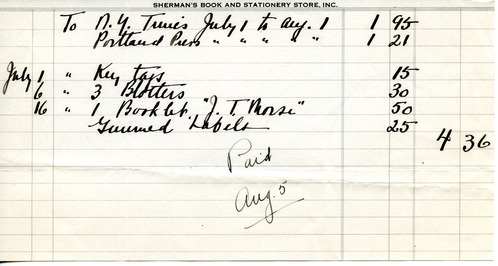 SHERMAN'S BOOK AND STATIONERY STORE, INC.
To N.Y. Times July 1 to Aug. 1 1 95
Portland Press " " " " " 1 21
July 1 " Key tags 15
6 " 3 Blotters 30
16 " 1 Booklet "J. T. Morse" 50
Gummed Labels 25
4 36
Paid
Aug. 5